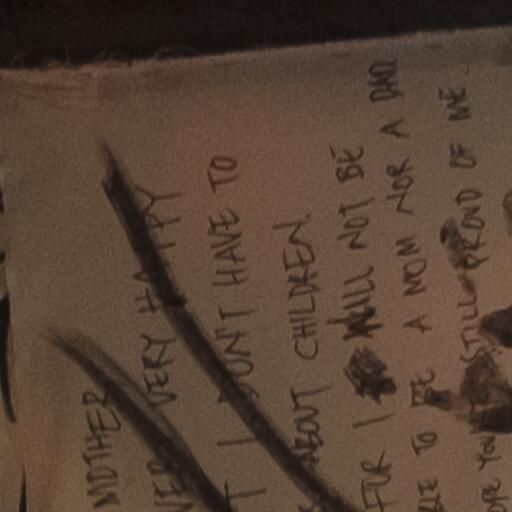 MOTHER
VERY HAPPY
I DON'T HAVE TO
ABOUT CHILDREN.
FOR I WILL NOT BE
TO BE A MOM NOR A DAD
STILL PROUD OF ME.